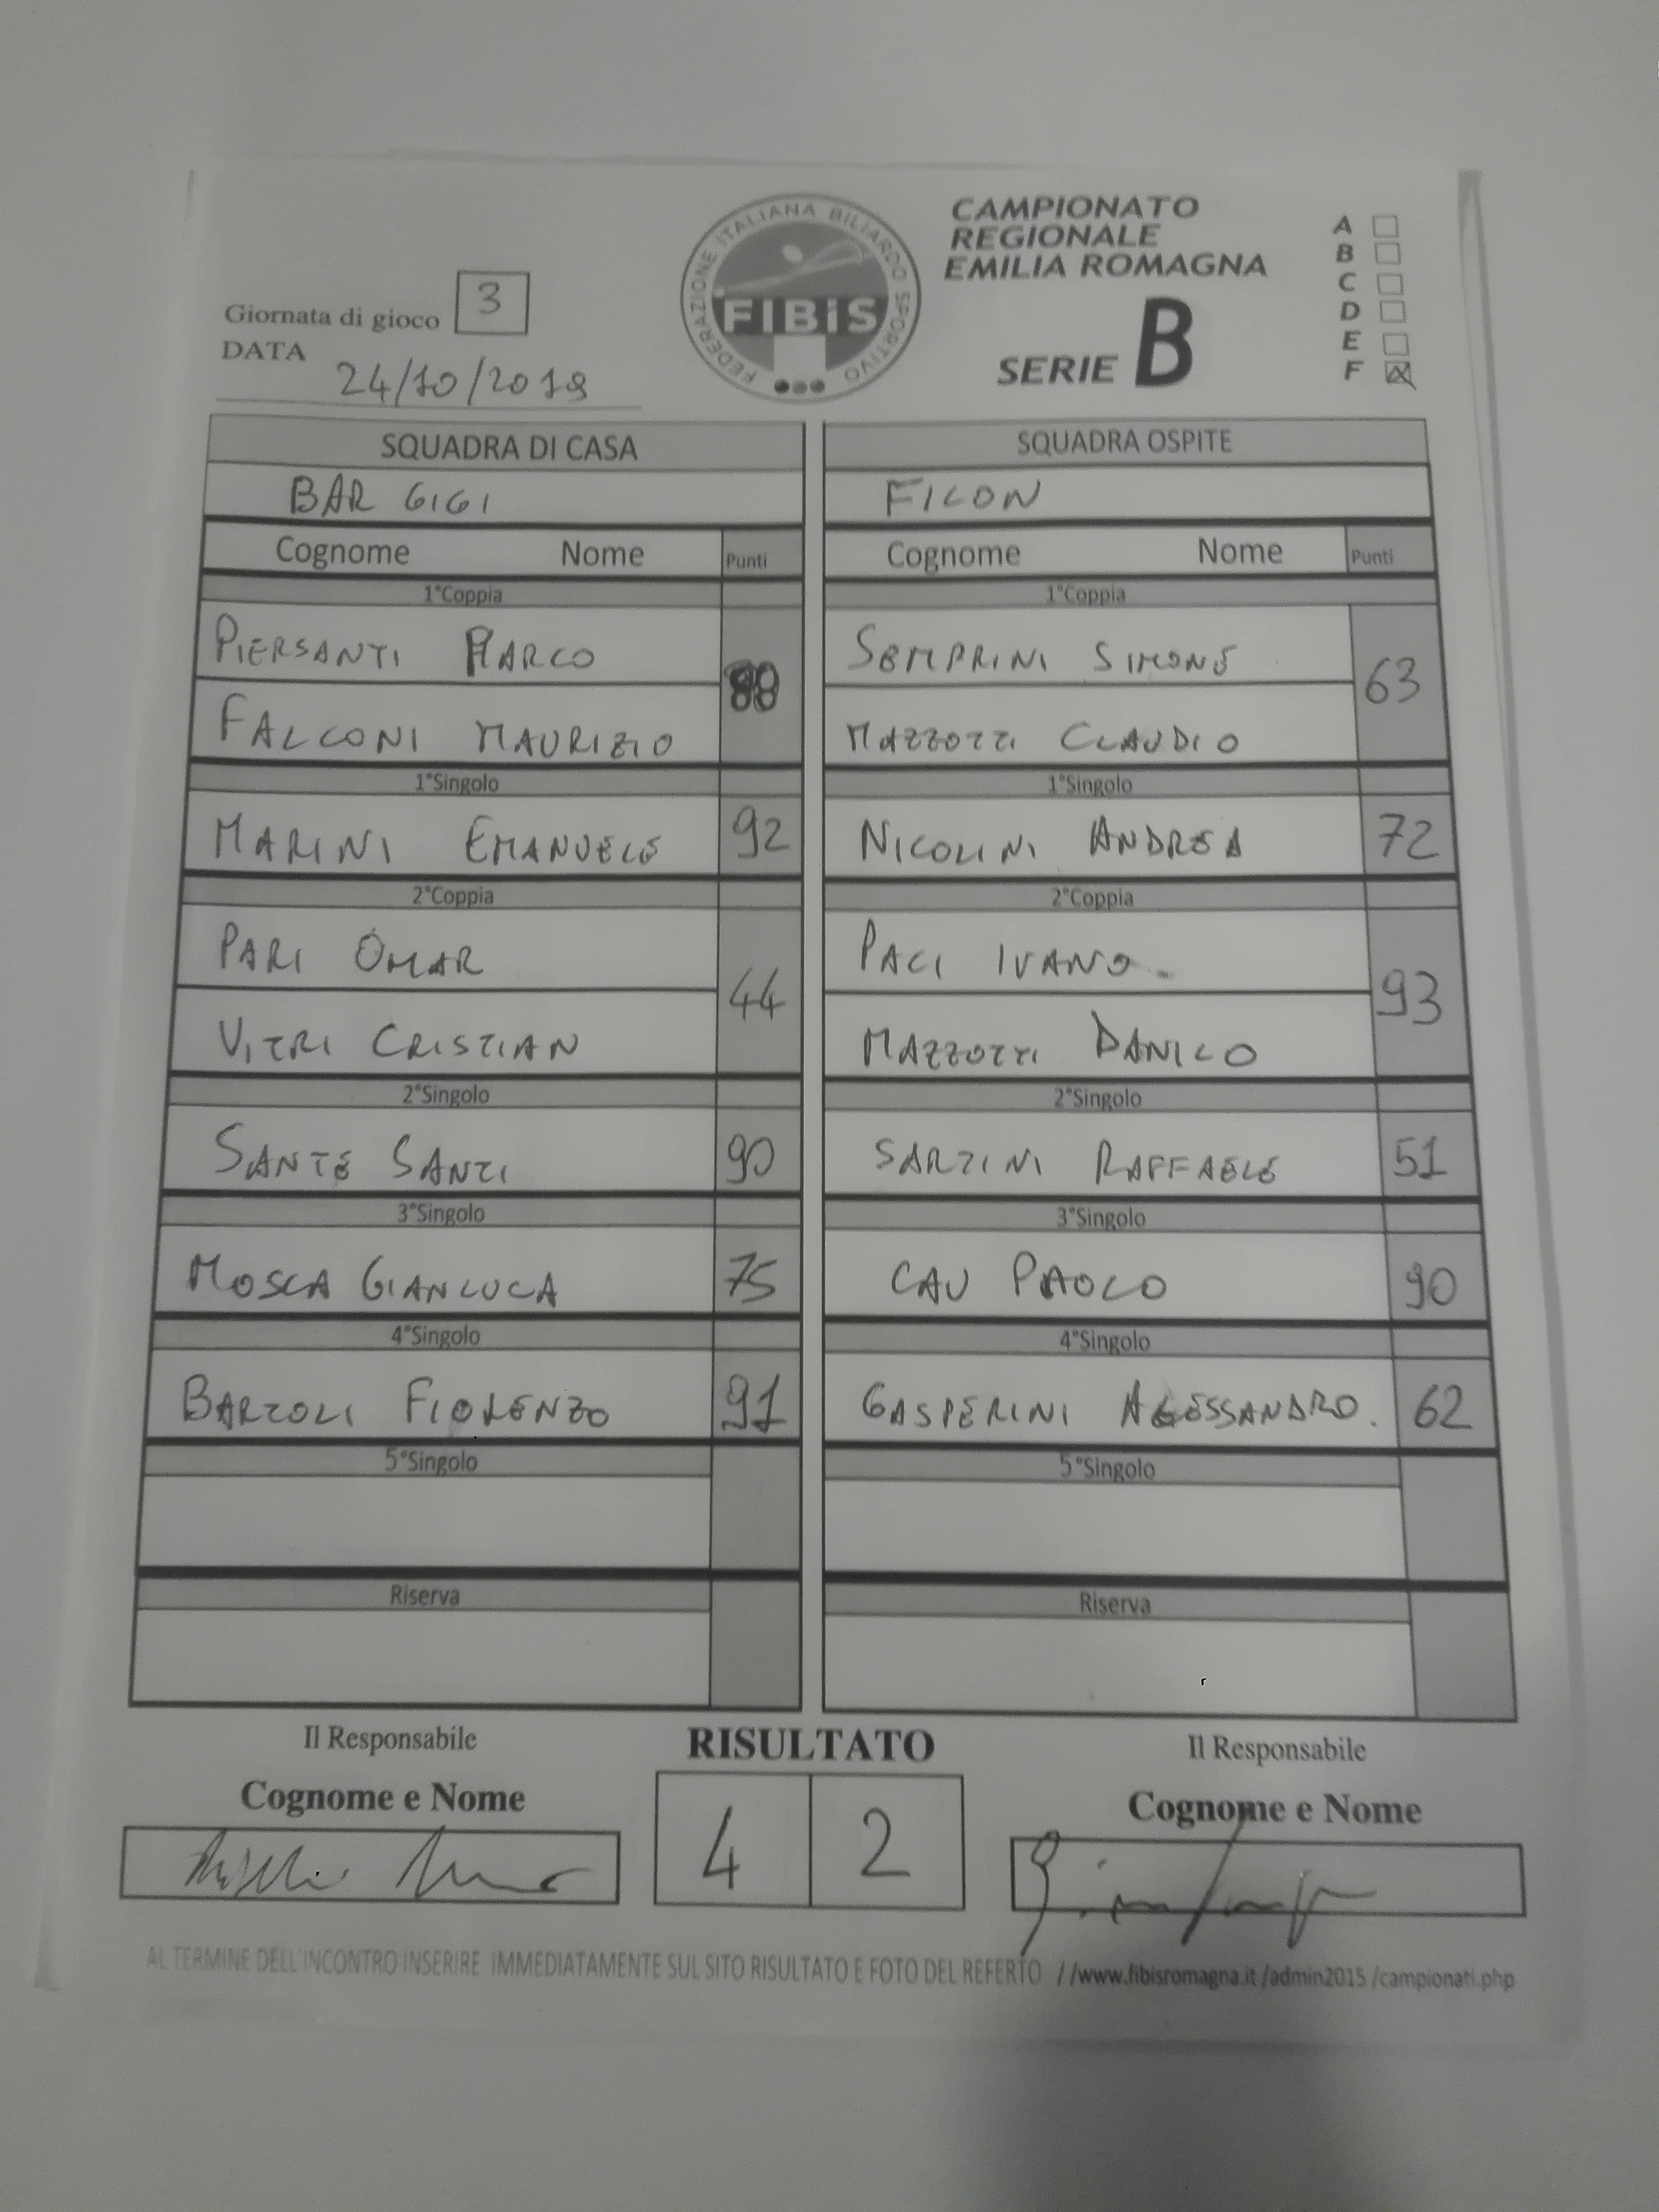 FEDERAZIONE ITALIANA BILIARDO SPORTIVO
FIBiS
CAMPIONATO
REGIONALE
EMILIA ROMAGNA
SERIE B
A
B
C
D
E
F
Giornata di gioco 3
DATA 24/10/2019
SQUADRA DI CASA SQUADRA OSPITE
BAR GIGI FICON
Cognome Nome Punti Cognome Nome Punti
1°Coppia 1°Coppia
PIERSANTI MARCO SEMPRINI SIMONE 63
FALCONI MAURIZIO MAZZOTTI CLAUDIO
1°Singolo 1°Singolo
MARINI EMANUELE 92 NICOLINI ANDREA 72
2°Coppia 2°Coppia
PARI OMAR 44 PACI IVANO 93
VITRI CRISTIAN MAZZOTTI DANILO
2°Singolo 2°Singolo
SANTE SANTI 90 SARTINI RAFFAELE 51
3°Singolo 3°Singolo
MOSCA GIANLUCA 75 CAU PAOLO 90
4°Singolo 4°Singolo
BARTOLI FIORENZO 91 GASPERINI ALESSANDRO. 62
5°Singolo 5°Singolo
Riserva Riserva
Il Responsabile RISULTATO Il Responsabile
Cognome e Nome 4 2 Cognome e Nome
AL TERMINE DELL'INCONTRO INSERIRE IMMEDIATAMENTE SUL SITO RISULTATO E FOTO DEL REFERTO //www.fibisromagna.it/admin2015/campionati.php